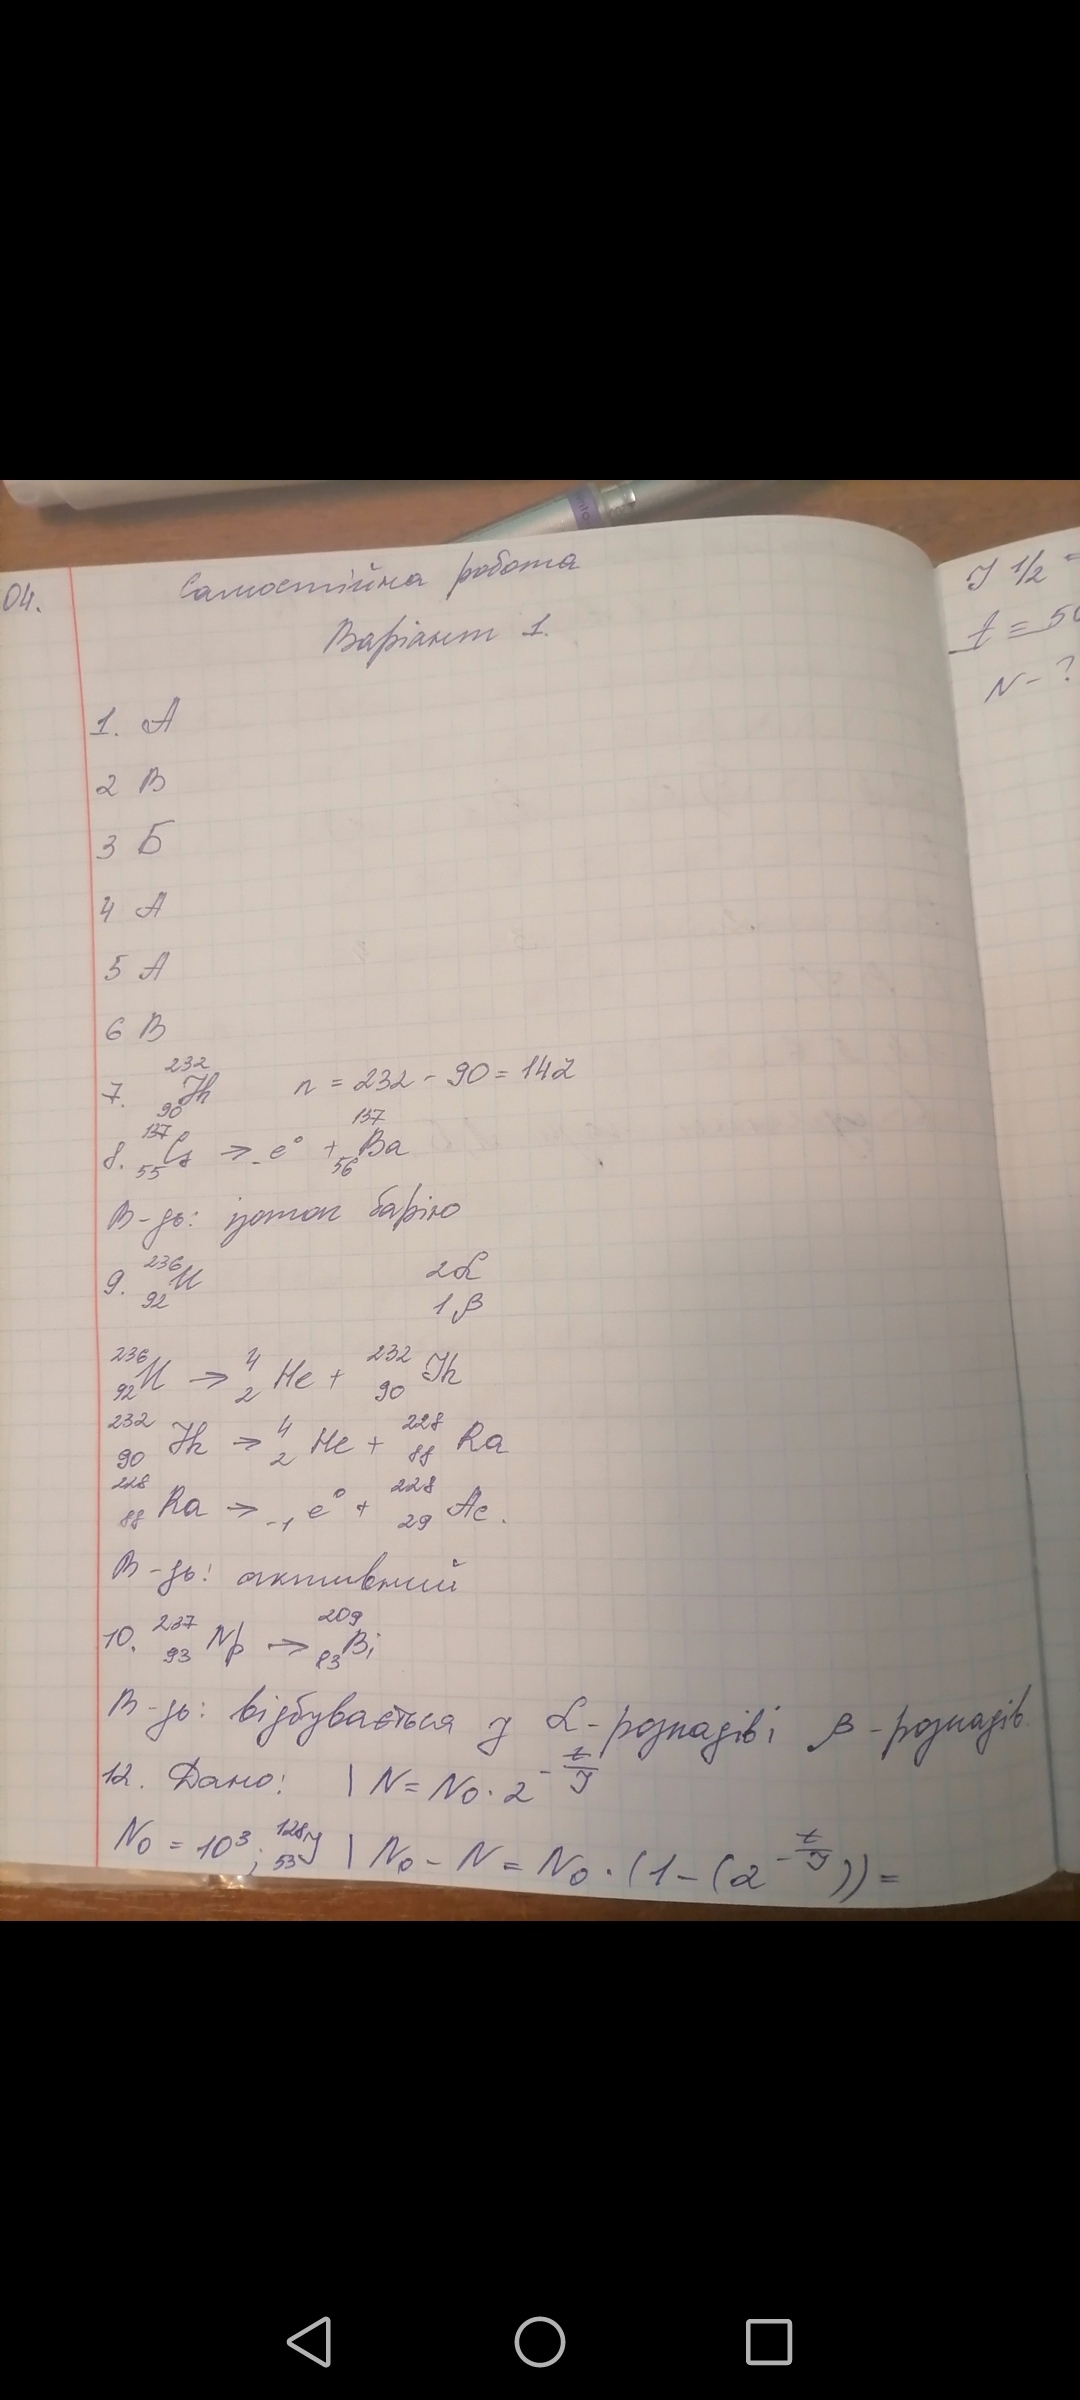 04.
Самостійна робота
Варіант 1.
1. А
2 В
3 Б
4 А
5 А
6 В
7. ²³²₉₀Th n = 232 - 90 = 142
8. ¹³⁷₅₅Cs → ₋e⁰ + ¹³⁷₅₆Ba
В-дь: ізотоп барію
9. ²³⁶₉₂U 2α
1β
²³⁶₉₂U → ⁴₂He + ²³²₉₀Th
²³²₉₀Th → ⁴₂He + ²²⁸₈₈Ra
²²⁸₈₈Ra → ₋₁e⁰ + ²²⁸₂₉Ac.
В-дь: активний
10. ²³⁷₉₃Np → ²⁰⁹₈₃Bi
В-дь: відбувається 7 α-розпадів і β-розпадів.
12. Дано: | N = N₀ · 2^(-t/T)
N₀ = 10³; ¹²⁸₅₃I | N₀ - N = N₀ · (1 - (2^(-t/T))) =
T 1/2 =
t = 50
N - ?